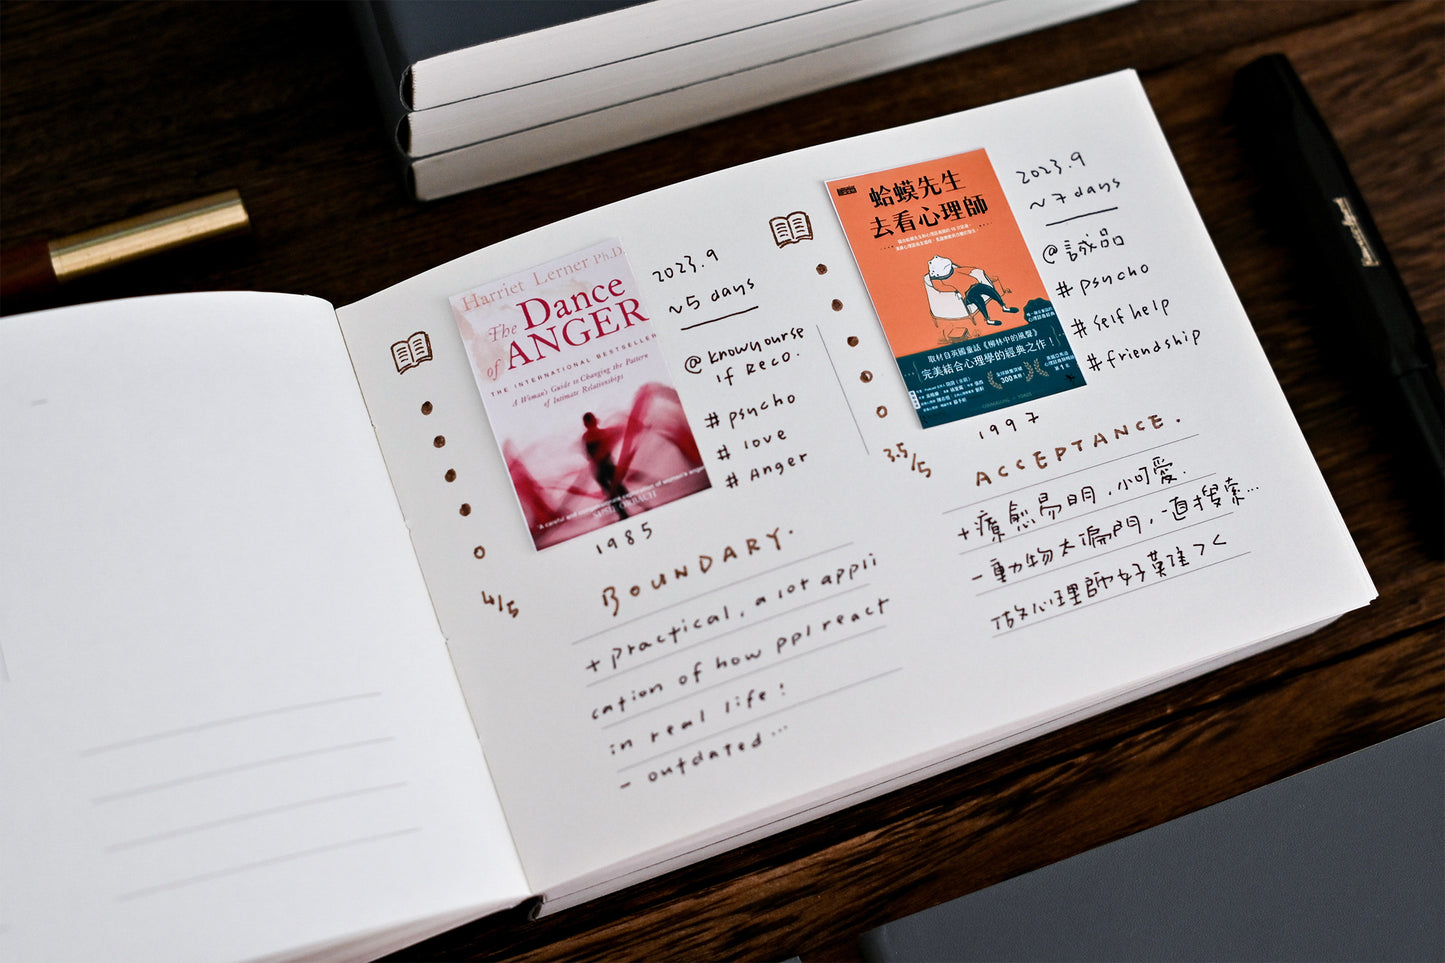 Harriet Lerner Ph.D.
The Dance
of ANGER
THE INTERNATIONAL BESTSELLER
A Woman's Guide to Changing the Pattern
of Intimate Relationships
SUSIE ORBACH
1985
2023.9
~5 days
@knowyourse
lf Reco.
# psycho
# love
# Anger
4/5
BOUNDARY.
+ practical, a lot appli
cation of how ppl react
in real life!
- outdated...
蛤蟆先生
去看心理師
取材自英國童話《柳林中的風聲》
完美結合心理學的經典之作!
1997
2023.9
~7 days
@誠品
#psycho
#self help
#friendship
3.5/5
ACCEPTANCE.
+療癒易明,小可愛.
-動物太偏門,一直搜索...
做心理師好難ㄋㄑ